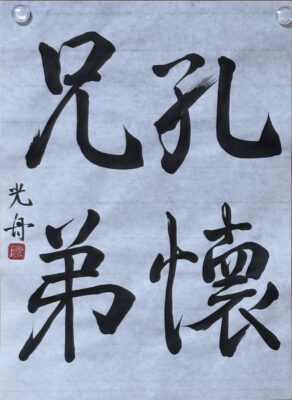 孔懐
兄弟
光舟